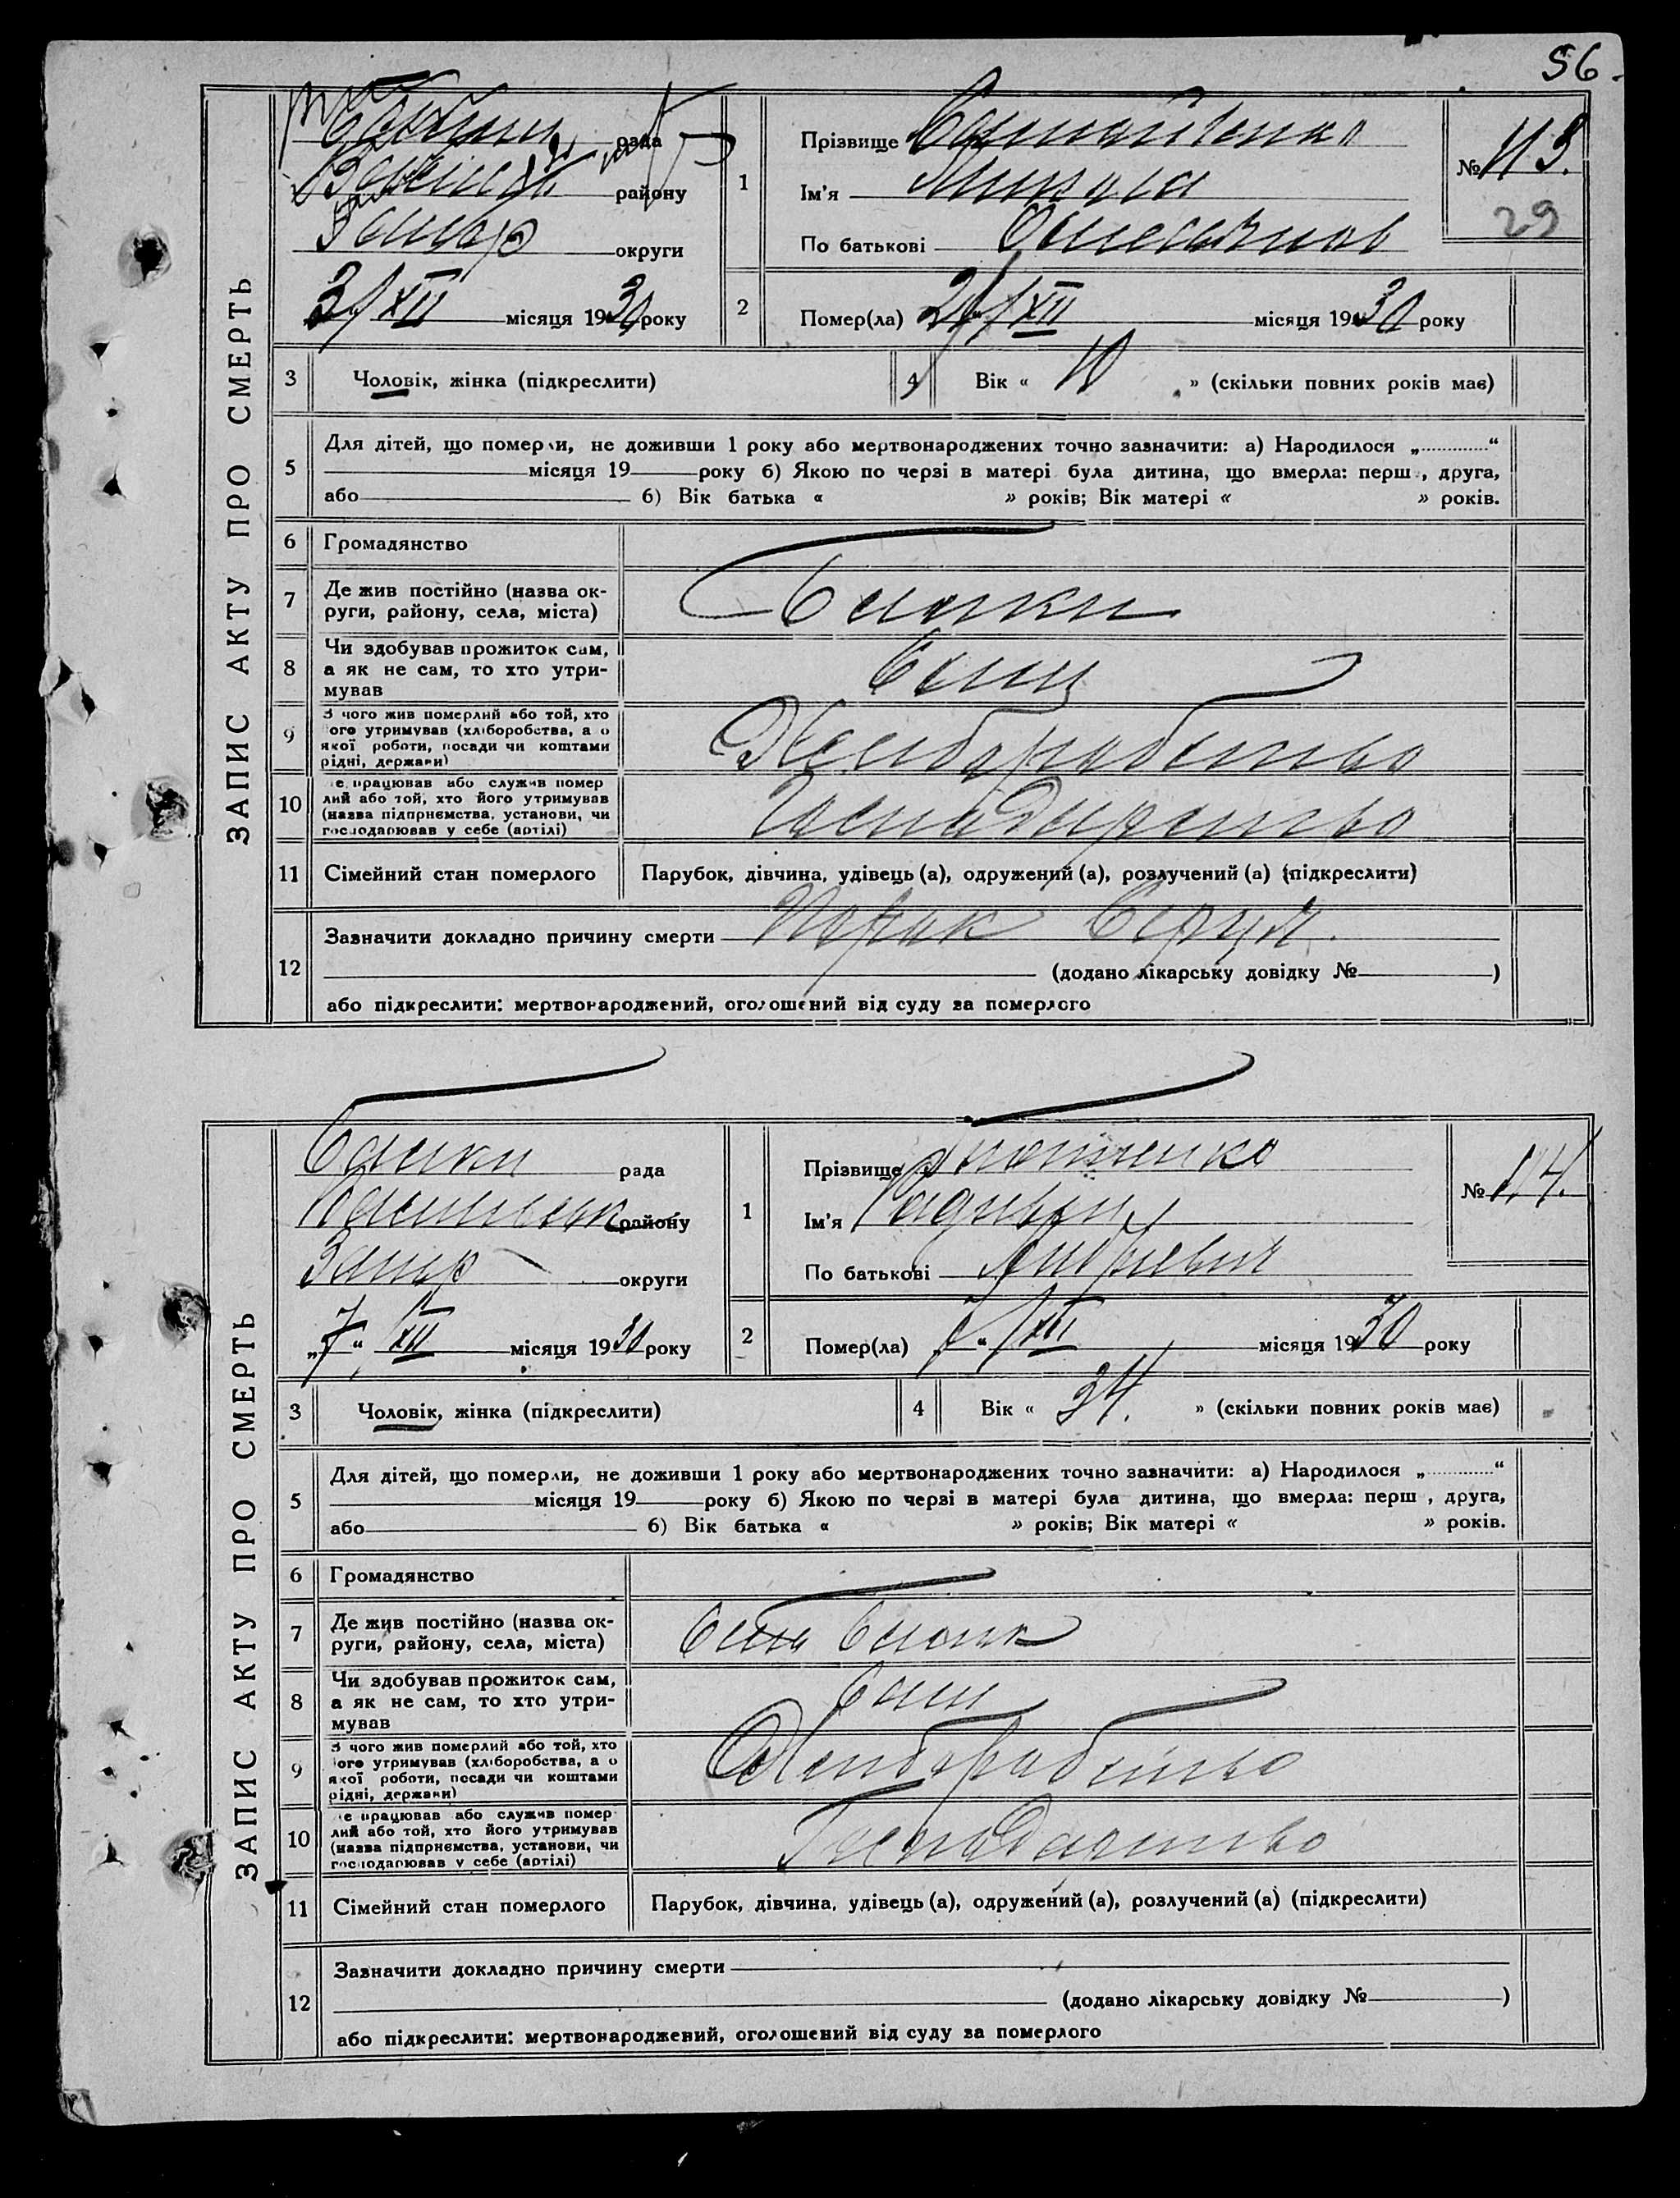 56.
ЗАПИС АКТУ ПРО СМЕРТЬ
рада
району
округи
3/XII місяця 1930 року
1
Прізвище
Ім'я
По батькові
№ 113.
29
2
Помер(ла) 2/XII місяця 1930 року
3 Чоловік, жінка (підкреслити)
4 Вік « » (скільки повних років має)
5 Для дітей, що померли, не доживши 1 року або мертвонароджених точно зазначити: а) Народилося „ “
місяця 19 року б) Якою по черзі в матері була дитина, що вмерла: перш , друга,
або б) Вік батька « » років; Вік матері « » років.
6 Громадянство
7 Де жив постійно (назва ок-
руги, району, села, міста)
8 Чи здобував прожиток сам,
а як не сам, то хто утри-
мував
Сам
9 З чого жив померлий або той, хто
його утримував (хліборобства, а о
якої роботи, посади чи коштами
рідні, держави)
Хлиборобство
10 е працював або служив помер
лий або той, хто його утримував
(назва підприємства, установи, чи
господарював у себе (артілі)
11 Сімейний стан померлого Парубок, дівчина, удівець (а), одружений (а), розлучений (а) (підкреслити)
12 Зазначити докладно причину смерти Порок Серця.
(додано лікарську довідку № )
або підкреслити: мертвонароджений, оголошений від суду за померлого
ЗАПИС АКТУ ПРО СМЕРТЬ
рада
району
Запор округи
„7“ XII місяця 1930 року
1
Прізвище
Ім'я
По батькові Андриевич
№ 114.
2
Помер(ла) 7 “ XII місяця 1930 року
3 Чоловік, жінка (підкреслити)
4 Вік « 34. » (скільки повних років має)
5 Для дітей, що померли, не доживши 1 року або мертвонароджених точно зазначити: а) Народилося „ “
місяця 19 року б) Якою по черзі в матері була дитина, що вмерла: перш , друга,
або б) Вік батька « » років; Вік матері « » років.
6 Громадянство
7 Де жив постійно (назва ок-
руги, району, села, міста)
8 Чи здобував прожиток сам,
а як не сам, то хто утри-
мував
Сам
9 З чого жив померлий або той, хто
його утримував (хліборобства, а о
якої роботи, посади чи коштами
рідні, держави)
Хлиборобство
10 е працював або служив помер
лий або той, хто його утримував
(назва підприємства, установи, чи
господарював у себе (артілі)
Господарство
11 Сімейний стан померлого Парубок, дівчина, удівець (а), одружений (а), розлучений (а) (підкреслити)
12 Зазначити докладно причину смерти
(додано лікарську довідку № )
або підкреслити: мертвонароджений, оголошений від суду за померлого